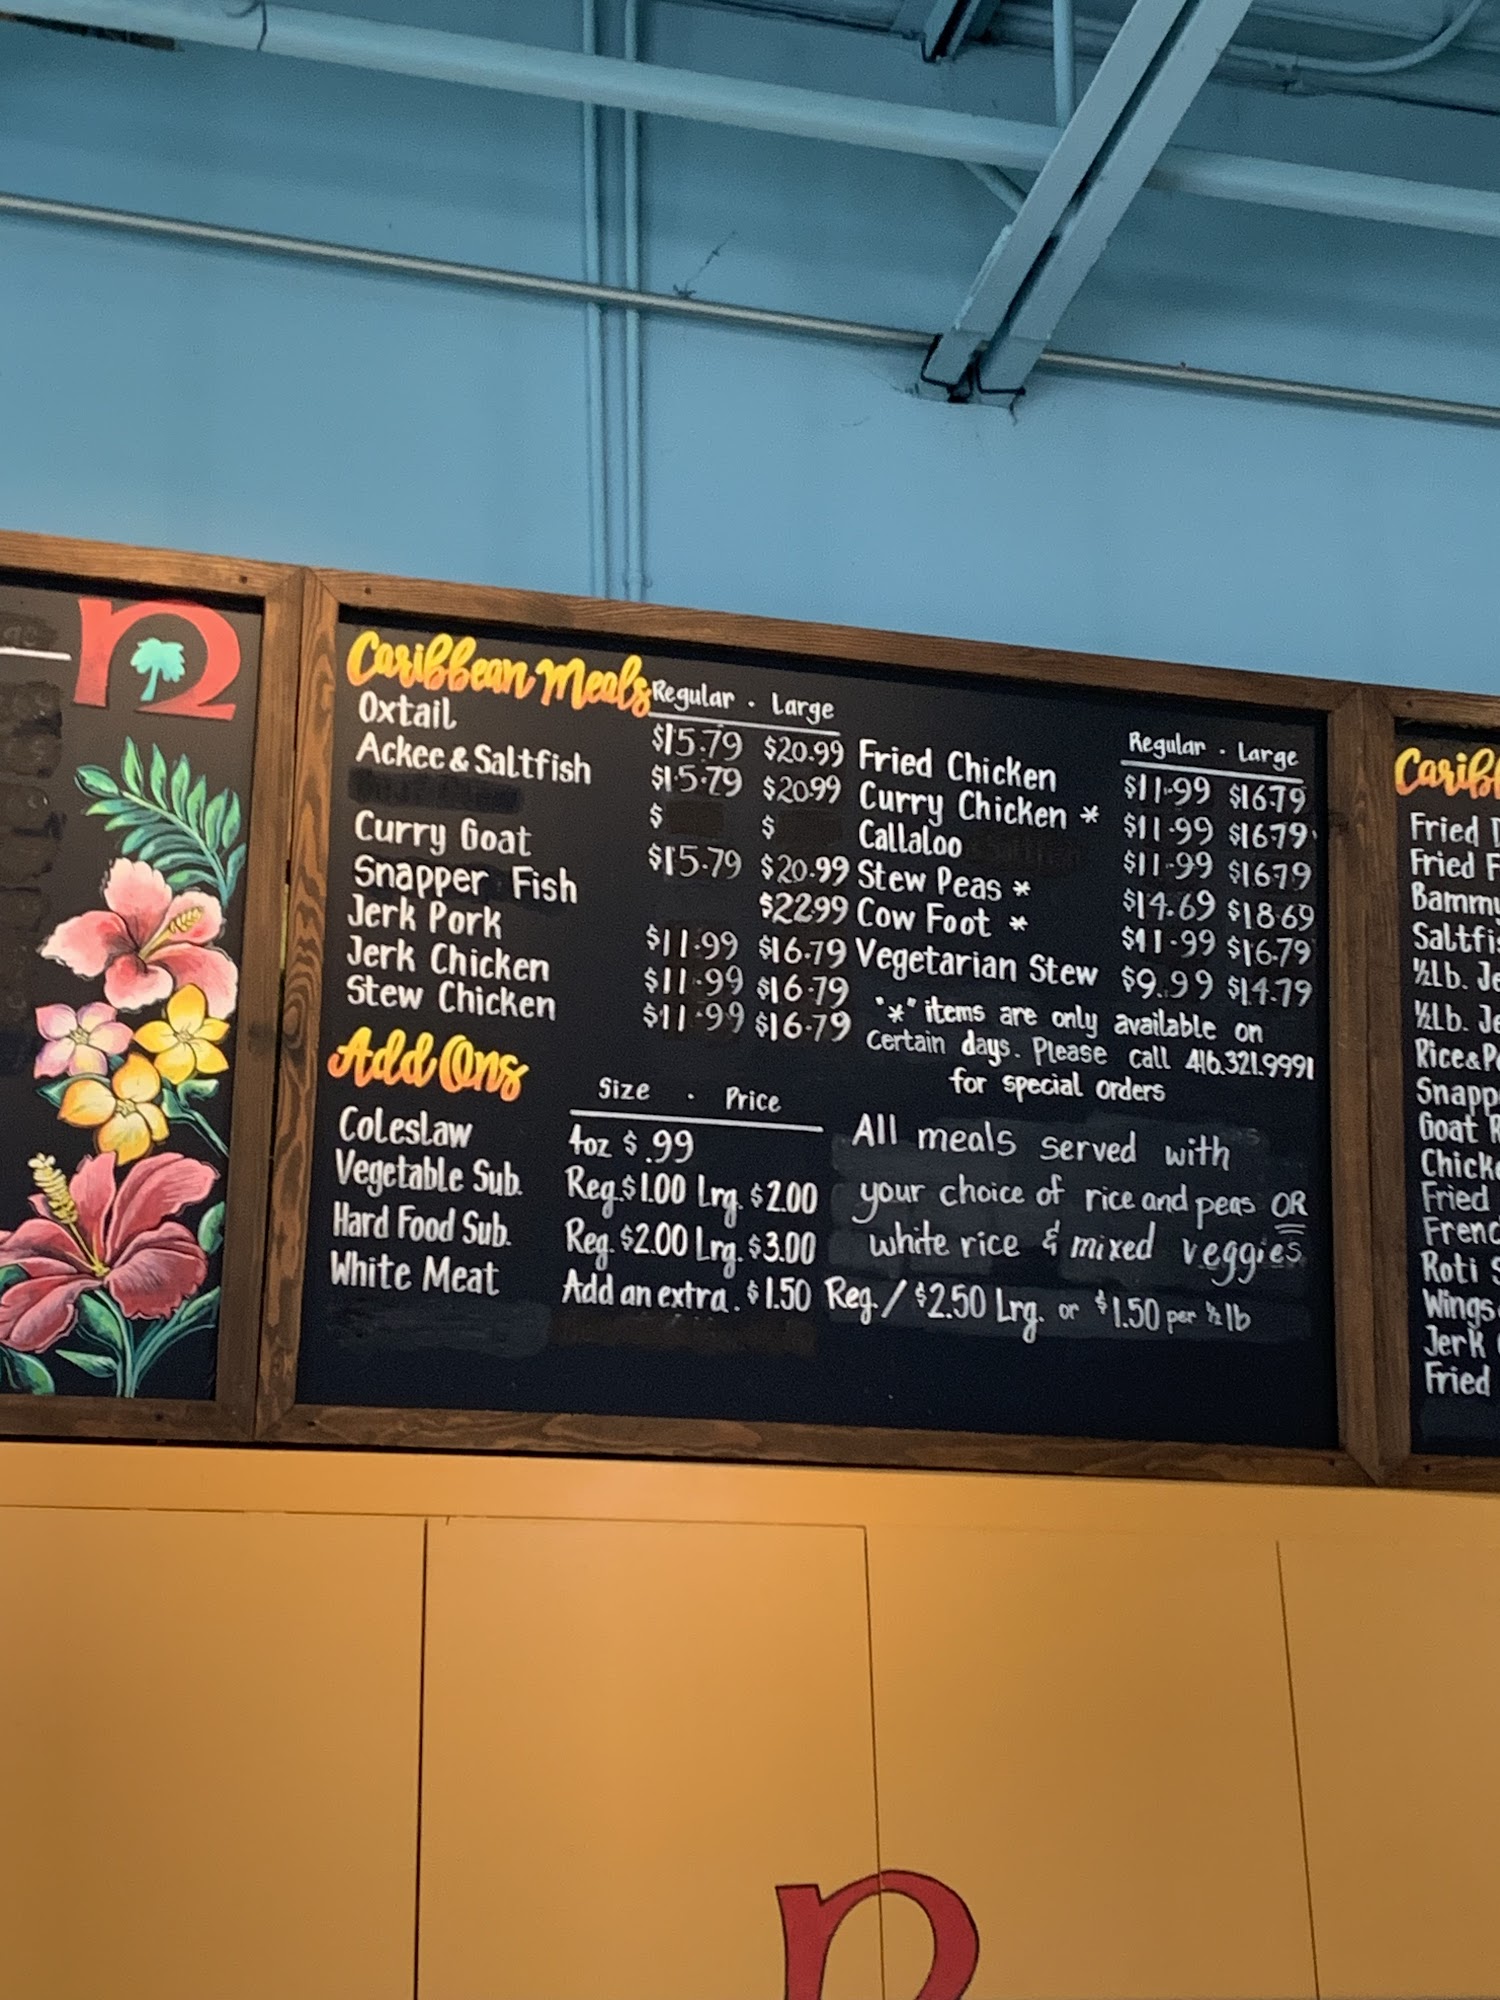 Caribbean Meals Regular . Large
Oxtail $15.79 $20.99
Ackee & Saltfish $15.79 $20.99
$ $
Curry Goat $15.79 $20.99
Snapper Fish $22.99
Jerk Pork $11.99 $16.79
Jerk Chicken $11.99 $16.79
Stew Chicken $11.99 $16.79
Regular . Large
Fried Chicken $11.99 $16.79
Curry Chicken * $11.99 $16.79
Callaloo $11.99 $16.79
Stew Peas * $14.69 $18.69
Cow Foot * $11.99 $16.79
Vegetarian Stew $9.99 $14.79
"*" items are only available on
certain days. Please call 416.321.9991
for special orders
Add Ons Size . Price
Coleslaw 4oz $.99
Vegetable Sub. Reg.$1.00 Lrg. $2.00
Hard Food Sub. Reg. $2.00 Lrg. $3.00
White Meat Add an extra. $1.50 Reg. / $2.50 Lrg. or $1.50 per ½ lb
All meals served with
your choice of rice and peas OR
white rice & mixed veggies
Fried
Fried
Bammy
½Lb.
½Lb.
Rice &
Goat
Fried
Roti
Wings
Jerk
Fried